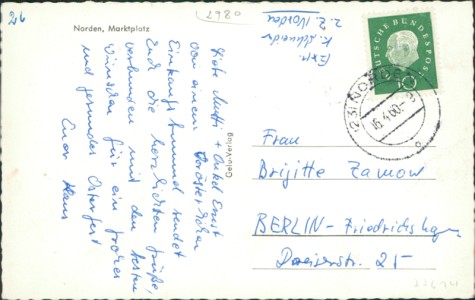 26
2980
Norden, Marktplatz
Exp.
K. Schneider
z. Z. Norden
DEUTSCHE BUNDESPOST
10
(23) NORDEN
16.4.60.-
Liebe Mutti + Onkel Ernst
von einem
Einkaufsbummel sendet
Euch die herzlichsten Grüße,
verbunden mit den besten
Wünschen für ein frohes
und gesundes Osterfest
Euer Klaus
Frau
Brigitte Zamow
BERLIN-Friedrichshgn.
21